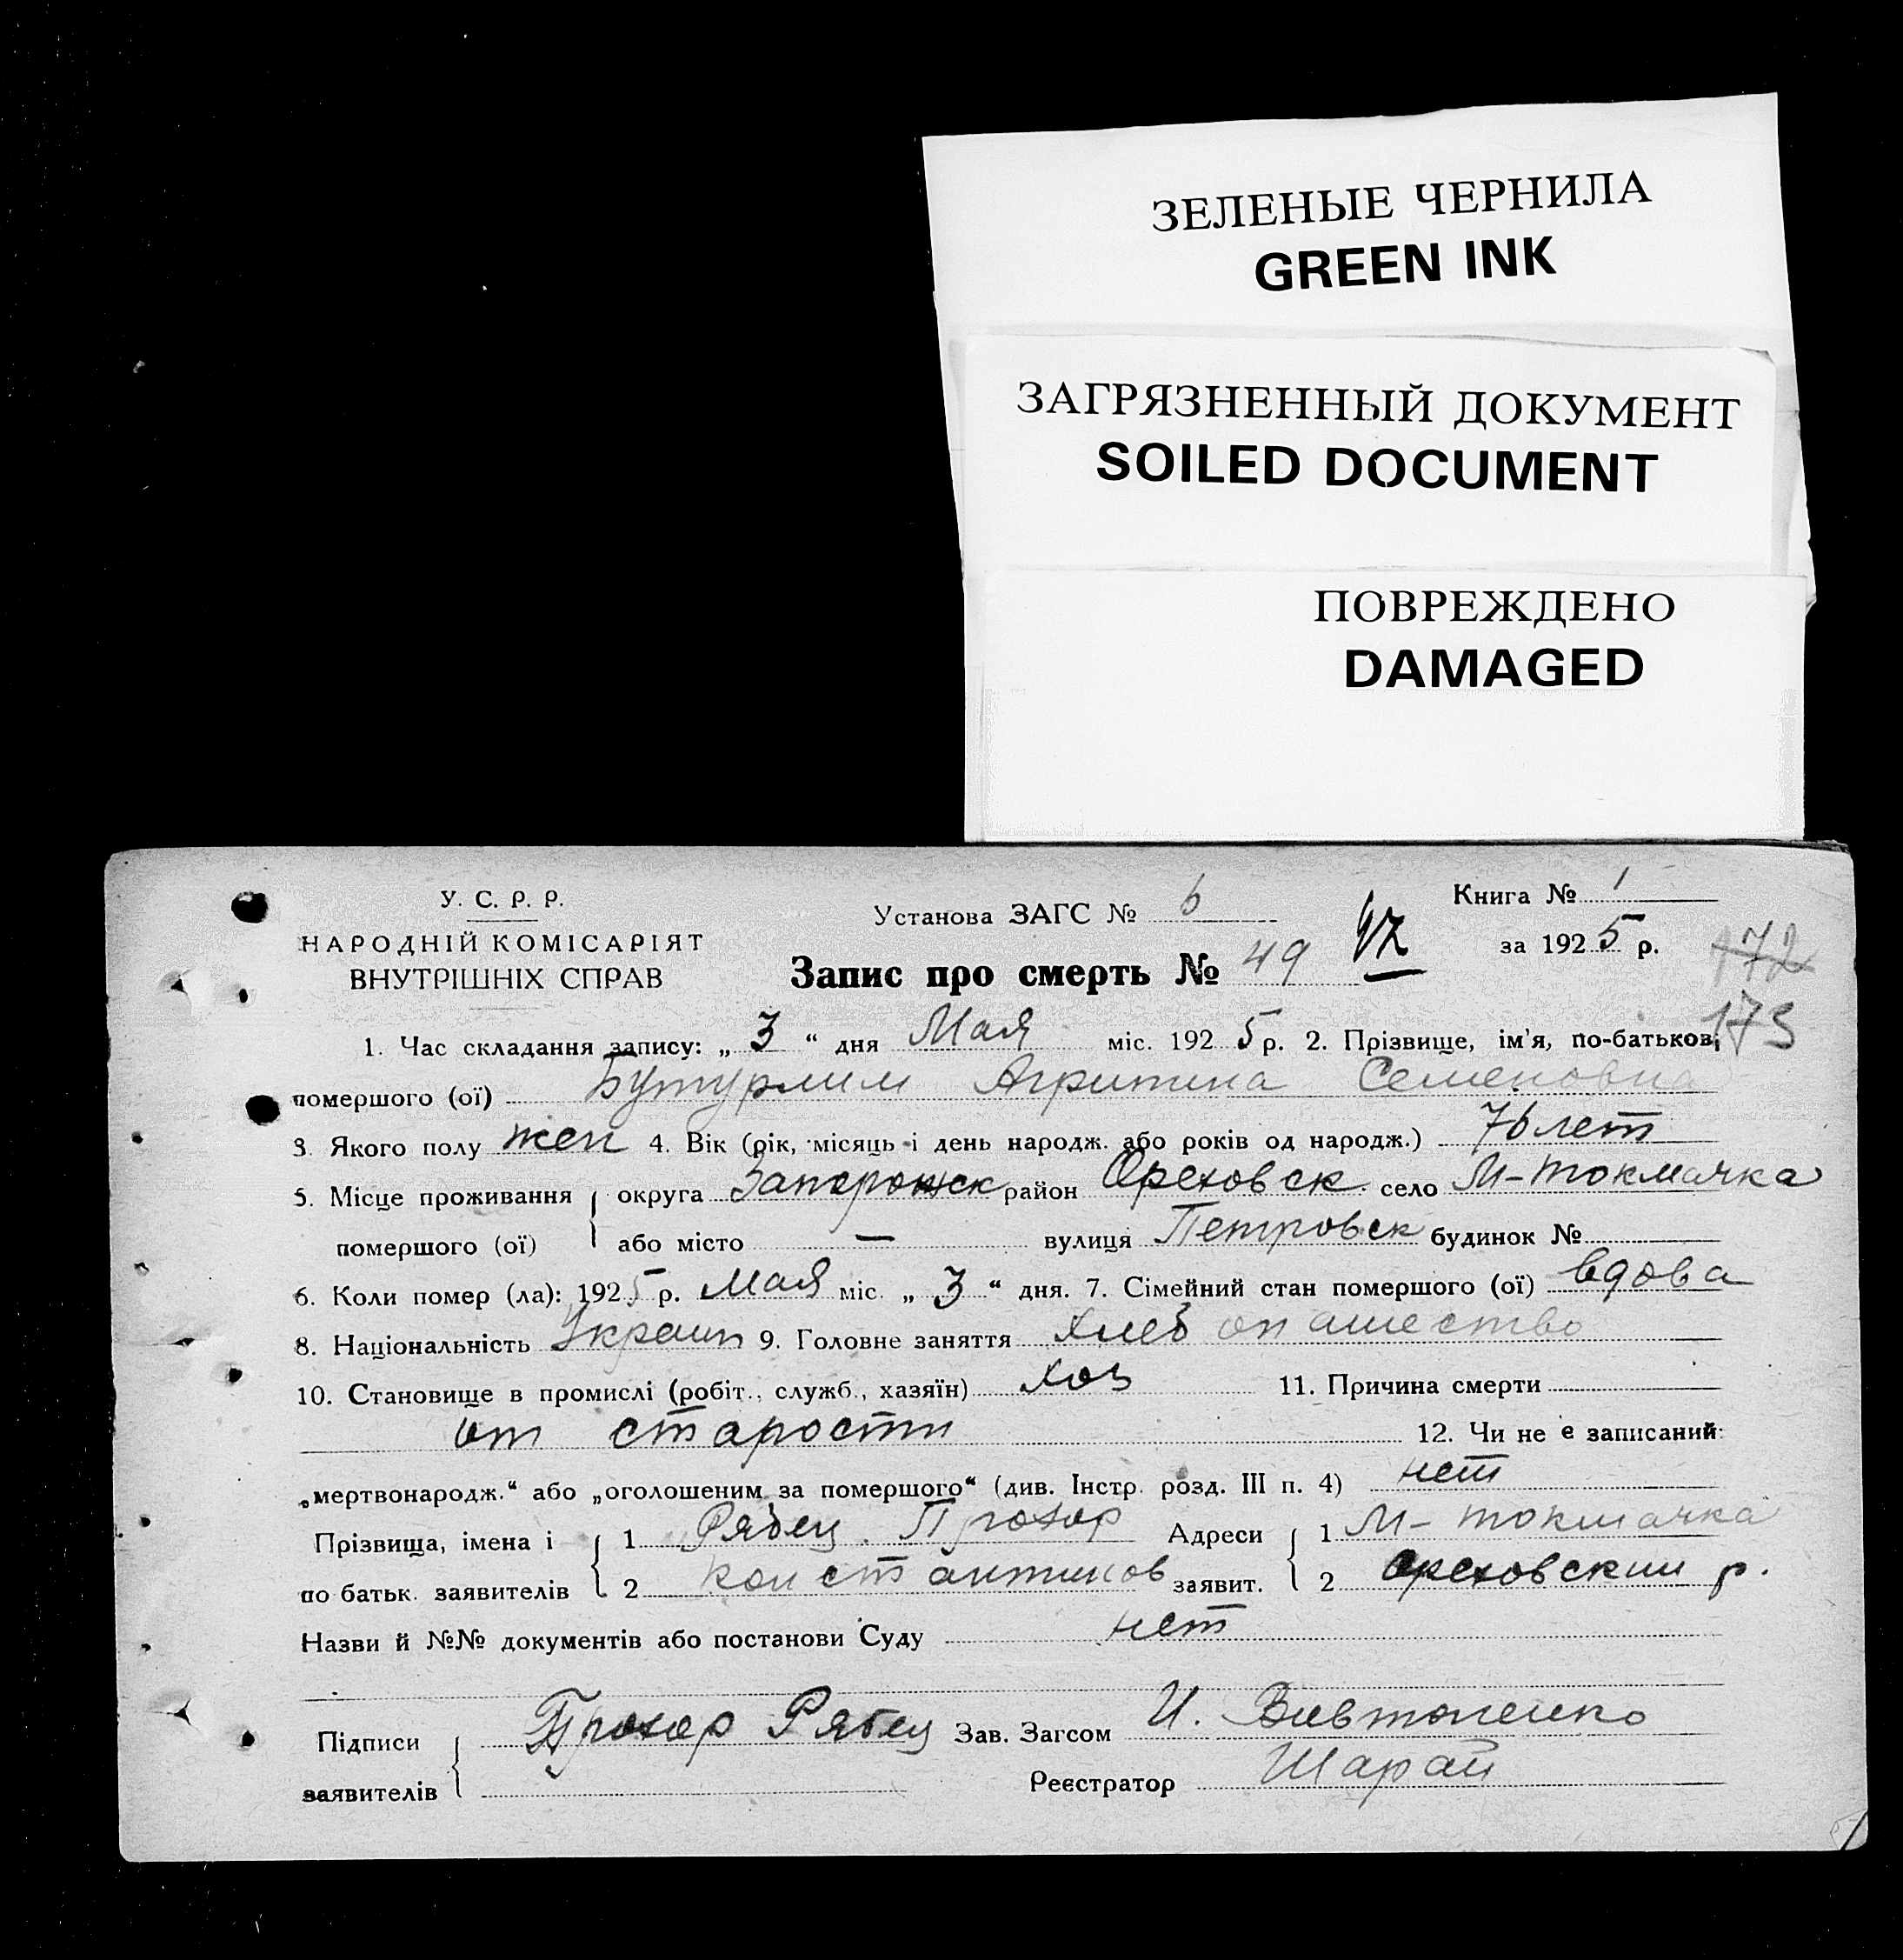 ЗЕЛЕНЫЕ ЧЕРНИЛА
GREEN INK
ЗАГРЯЗНЕННЫЙ ДОКУМЕНТ
SOILED DOCUMENT
ПОВРЕЖДЕНО
DAMAGED
У. С. Р. Р.
НАРОДНІЙ КОМІСАРІЯТ
ВНУТРІШНІХ СПРАВ
Установа ЗАГС № 6
Книга № 1
за 1925 р.
172
Запис про смерть № 49
173
1. Час складання запису: „3“ дня Мая міс. 1925 р. 2. Прізвище, ім'я, по-батькові
помершого (ої) Бутурлим Агрипина Семеновна
3. Якого полу жен 4. Вік (рік, місяць і день народж. або років од народж.) 76 лет
5. Місце проживання округа Запорожск район Ореховск. село М-Токмачка
помершого (ої) або місто — вулиця Петровск будинок №
6. Коли помер (ла): 1925 р. Мая міс. „3“ дня. 7. Сімейний стан помершого (ої) вдова
8. Національність Украин 9. Головне заняття хлебопашество
10. Становище в промислі (робіт., служб., хазяїн) хоз 11. Причина смерти
от старости 12. Чи не є записаний:
„мертвонародж.“ або „оголошеним за помершого“ (див. Інстр. розд. III п. 4) нет
Прізвища, імена і 1 Рябец Прохор Адреси 1 М-Токмачка
по батьк. заявителів 2 Константинов заявит. 2 Ореховский р.
Назви й №№ документів або постанови Суду нет
Підписи Прохор Рябец Зав. Загсом И.
заявителів Реєстратор Шарай